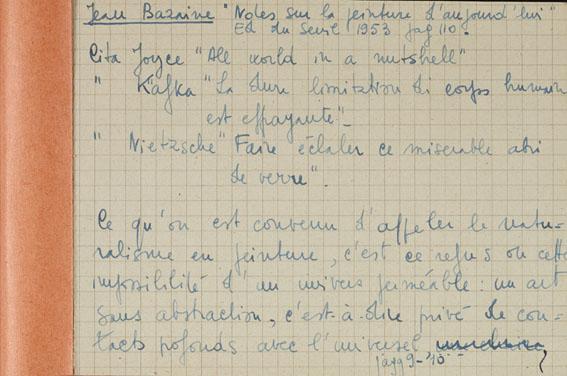 Jean Bazaine "Notes sur la peinture d'aujourd'hui"
Ed. du Seuil 1953 pag 110.
Cita Joyce "All world in a nutshell"
" Kafka "La dure limitation di corps humain
est effrayante".
" Nietzsche "Faire éclater ce miserable abri
de verre".
Ce qu'on est convenu d'appeler le natu=
ralisme en peinture, c'est ce refus ou cette
impossibilité d'un univers perméable: un art
sans abstraction, c'est-à-dire privé de con-
tacts pofonds avec l'universel
pag 9-10-